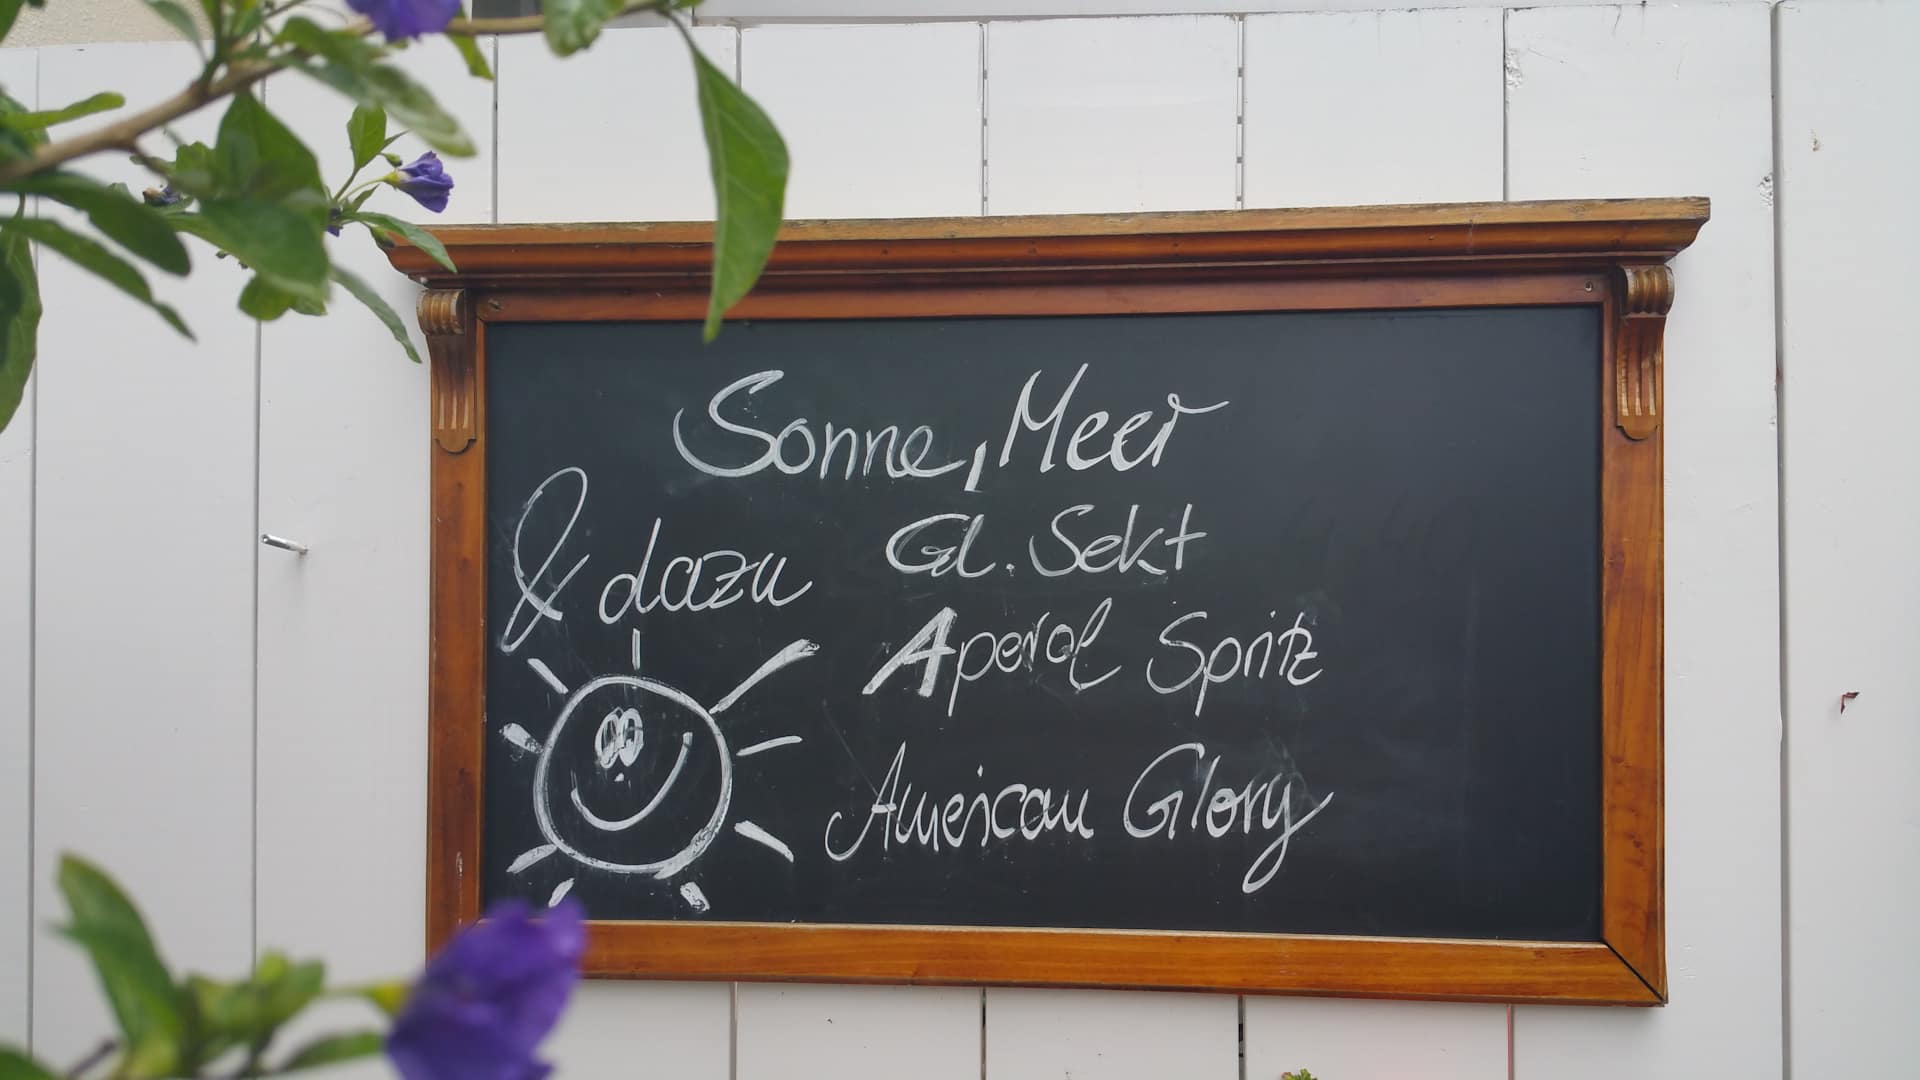 Sonne, Meer
& dazu
Gl. Sekt
Aperol Spritz
American Glory